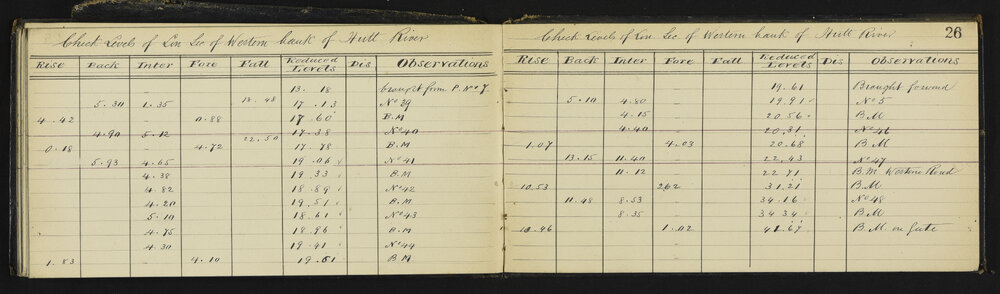 Check Levels of Lon Sec of Western bank of Hutt River
Rise Back Inter Fore Fall Reduced Levels Dis Observations
13.18 brought from P. No 7
5.30 1.35 18.48 17.13 No 39
4.42 0.88 17.60 B.M
4.90 5.12 22.50 17.38 No 40
0.18 4.72 17.78 B.M
5.93 4.65 19.06 No 41
4.38 19.33 B.M
4.82 18.89 No 42
4.20 19.51 B.M
5.10 18.61 No 43
4.75 18.96 B.M
4.30 19.41 No 44
1.83 4.10 19.61 B.M
Check Levels of Lon Sec of Western bank of Hutt River 26
Rise Back Inter Fore Fall Reduced Levels Dis Observations
19.61 Brought forward
5.10 4.80 19.91 No 5
4.15 20.56 B.M
4.40 20.31 No 46
1.07 4.03 20.68 B.M
13.15 11.40 22.43 No 47
11.12 22.71 B.M Western Road
10.53 2.62 31.21 B.M
11.48 8.53 34.16 No 48
8.35 34.34 B.M
1.02 41.67 B.M on Gate